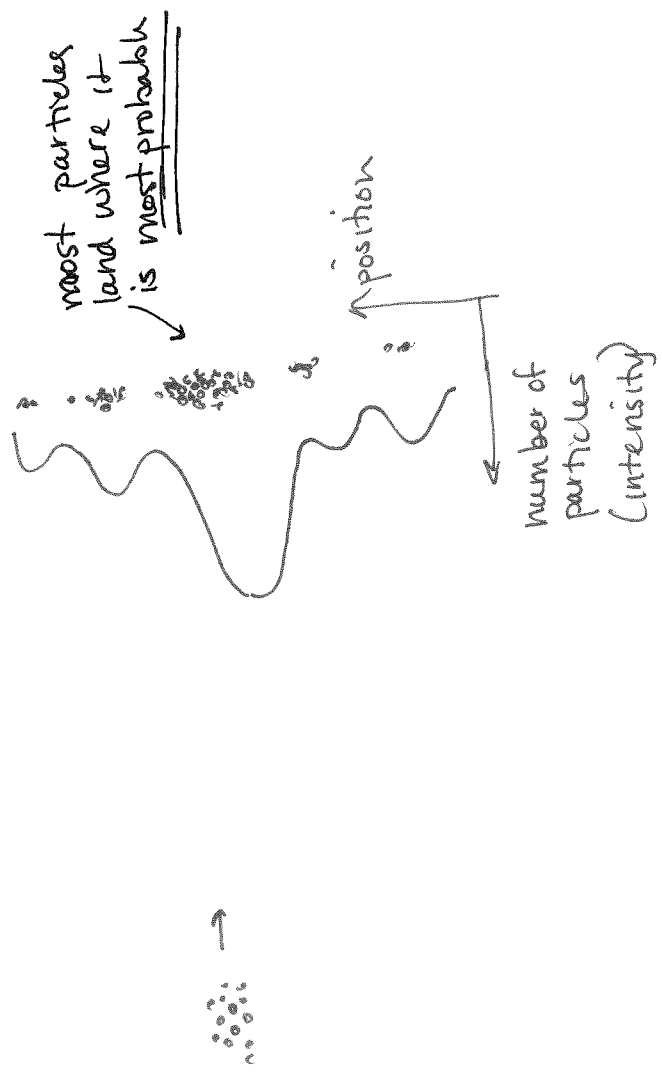 most particles
land where it
is most probable
position
number of
particles
(intensity)